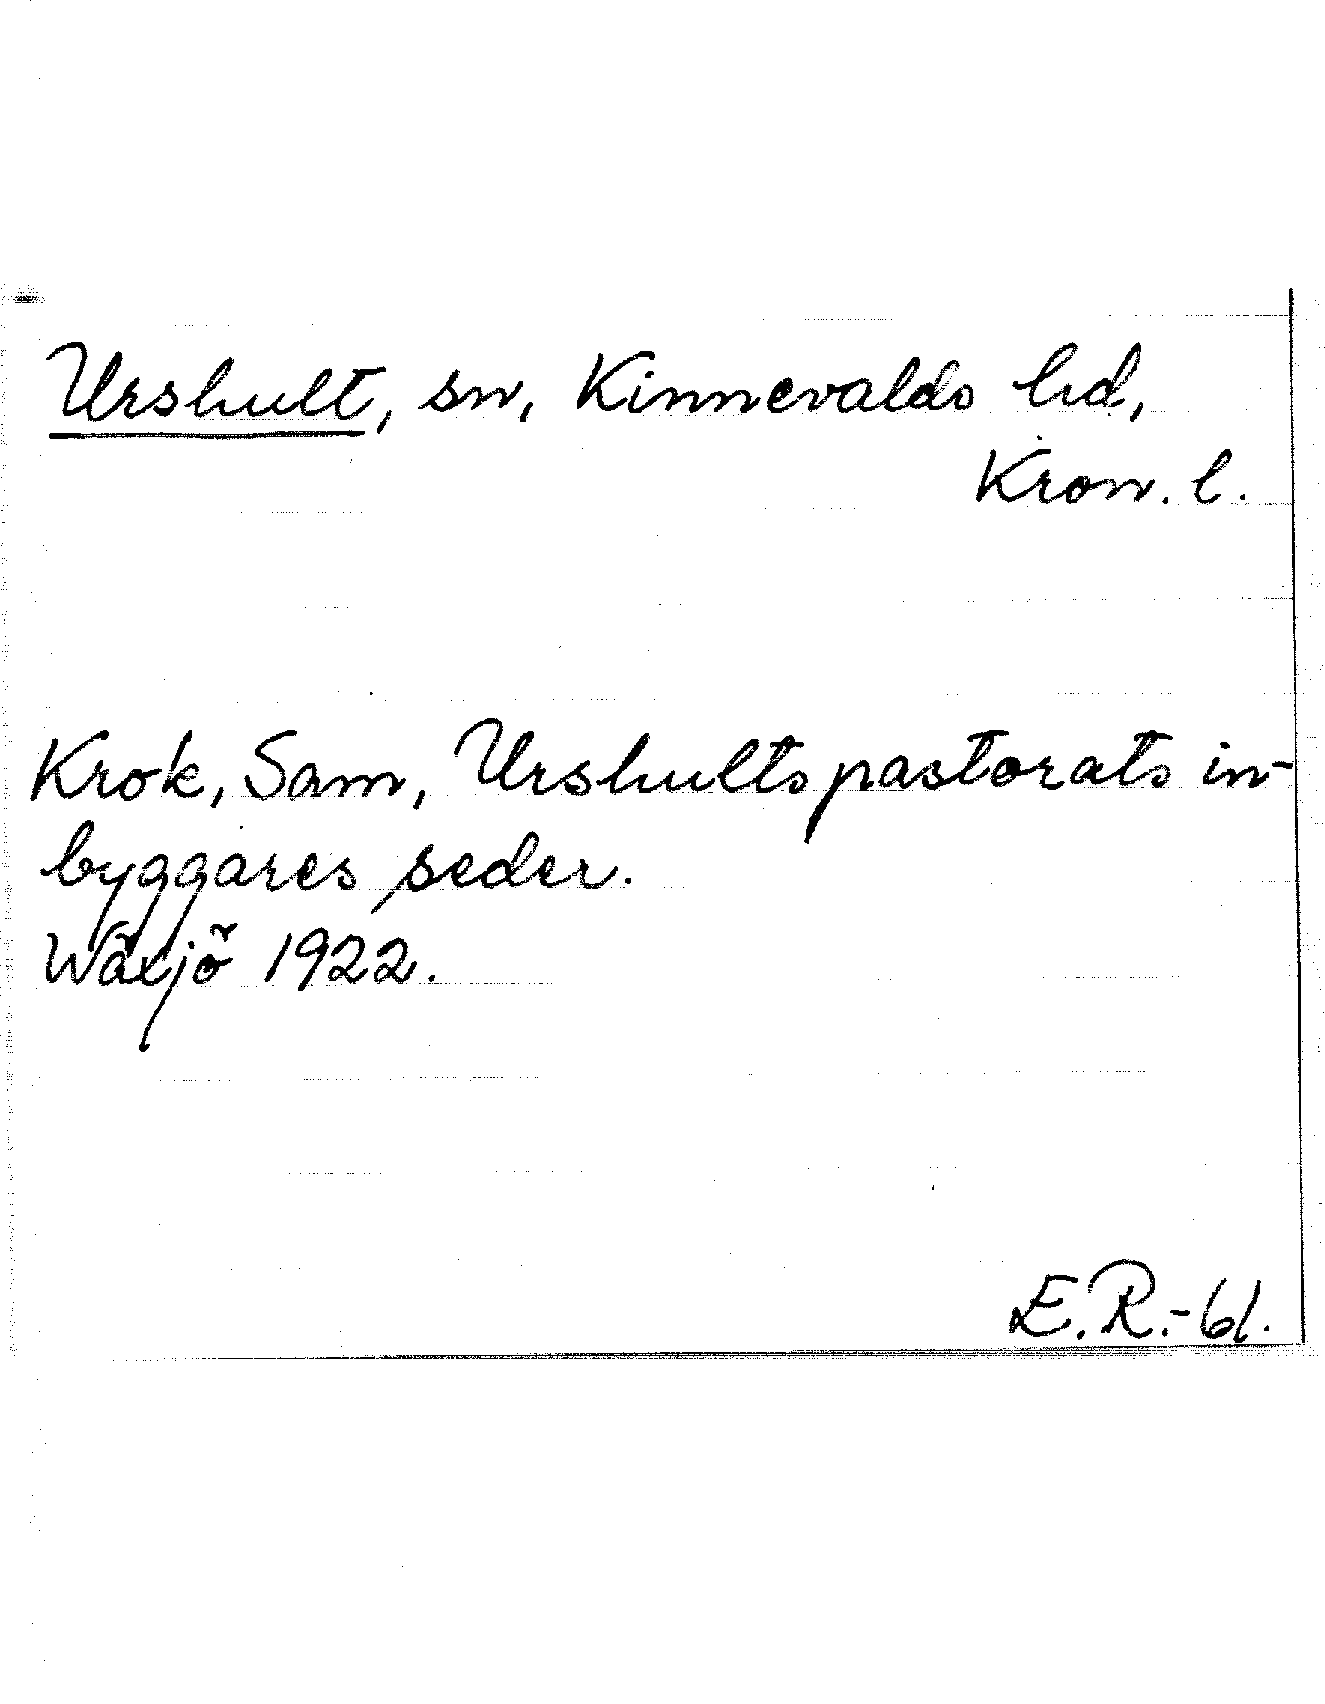 Urshult, sn, Kinnevalds hd,
Kron. l.
Krok, Sam, Urshults pastorats in-
byggares seder.
Wäxjö 1922.
E.R.-61.